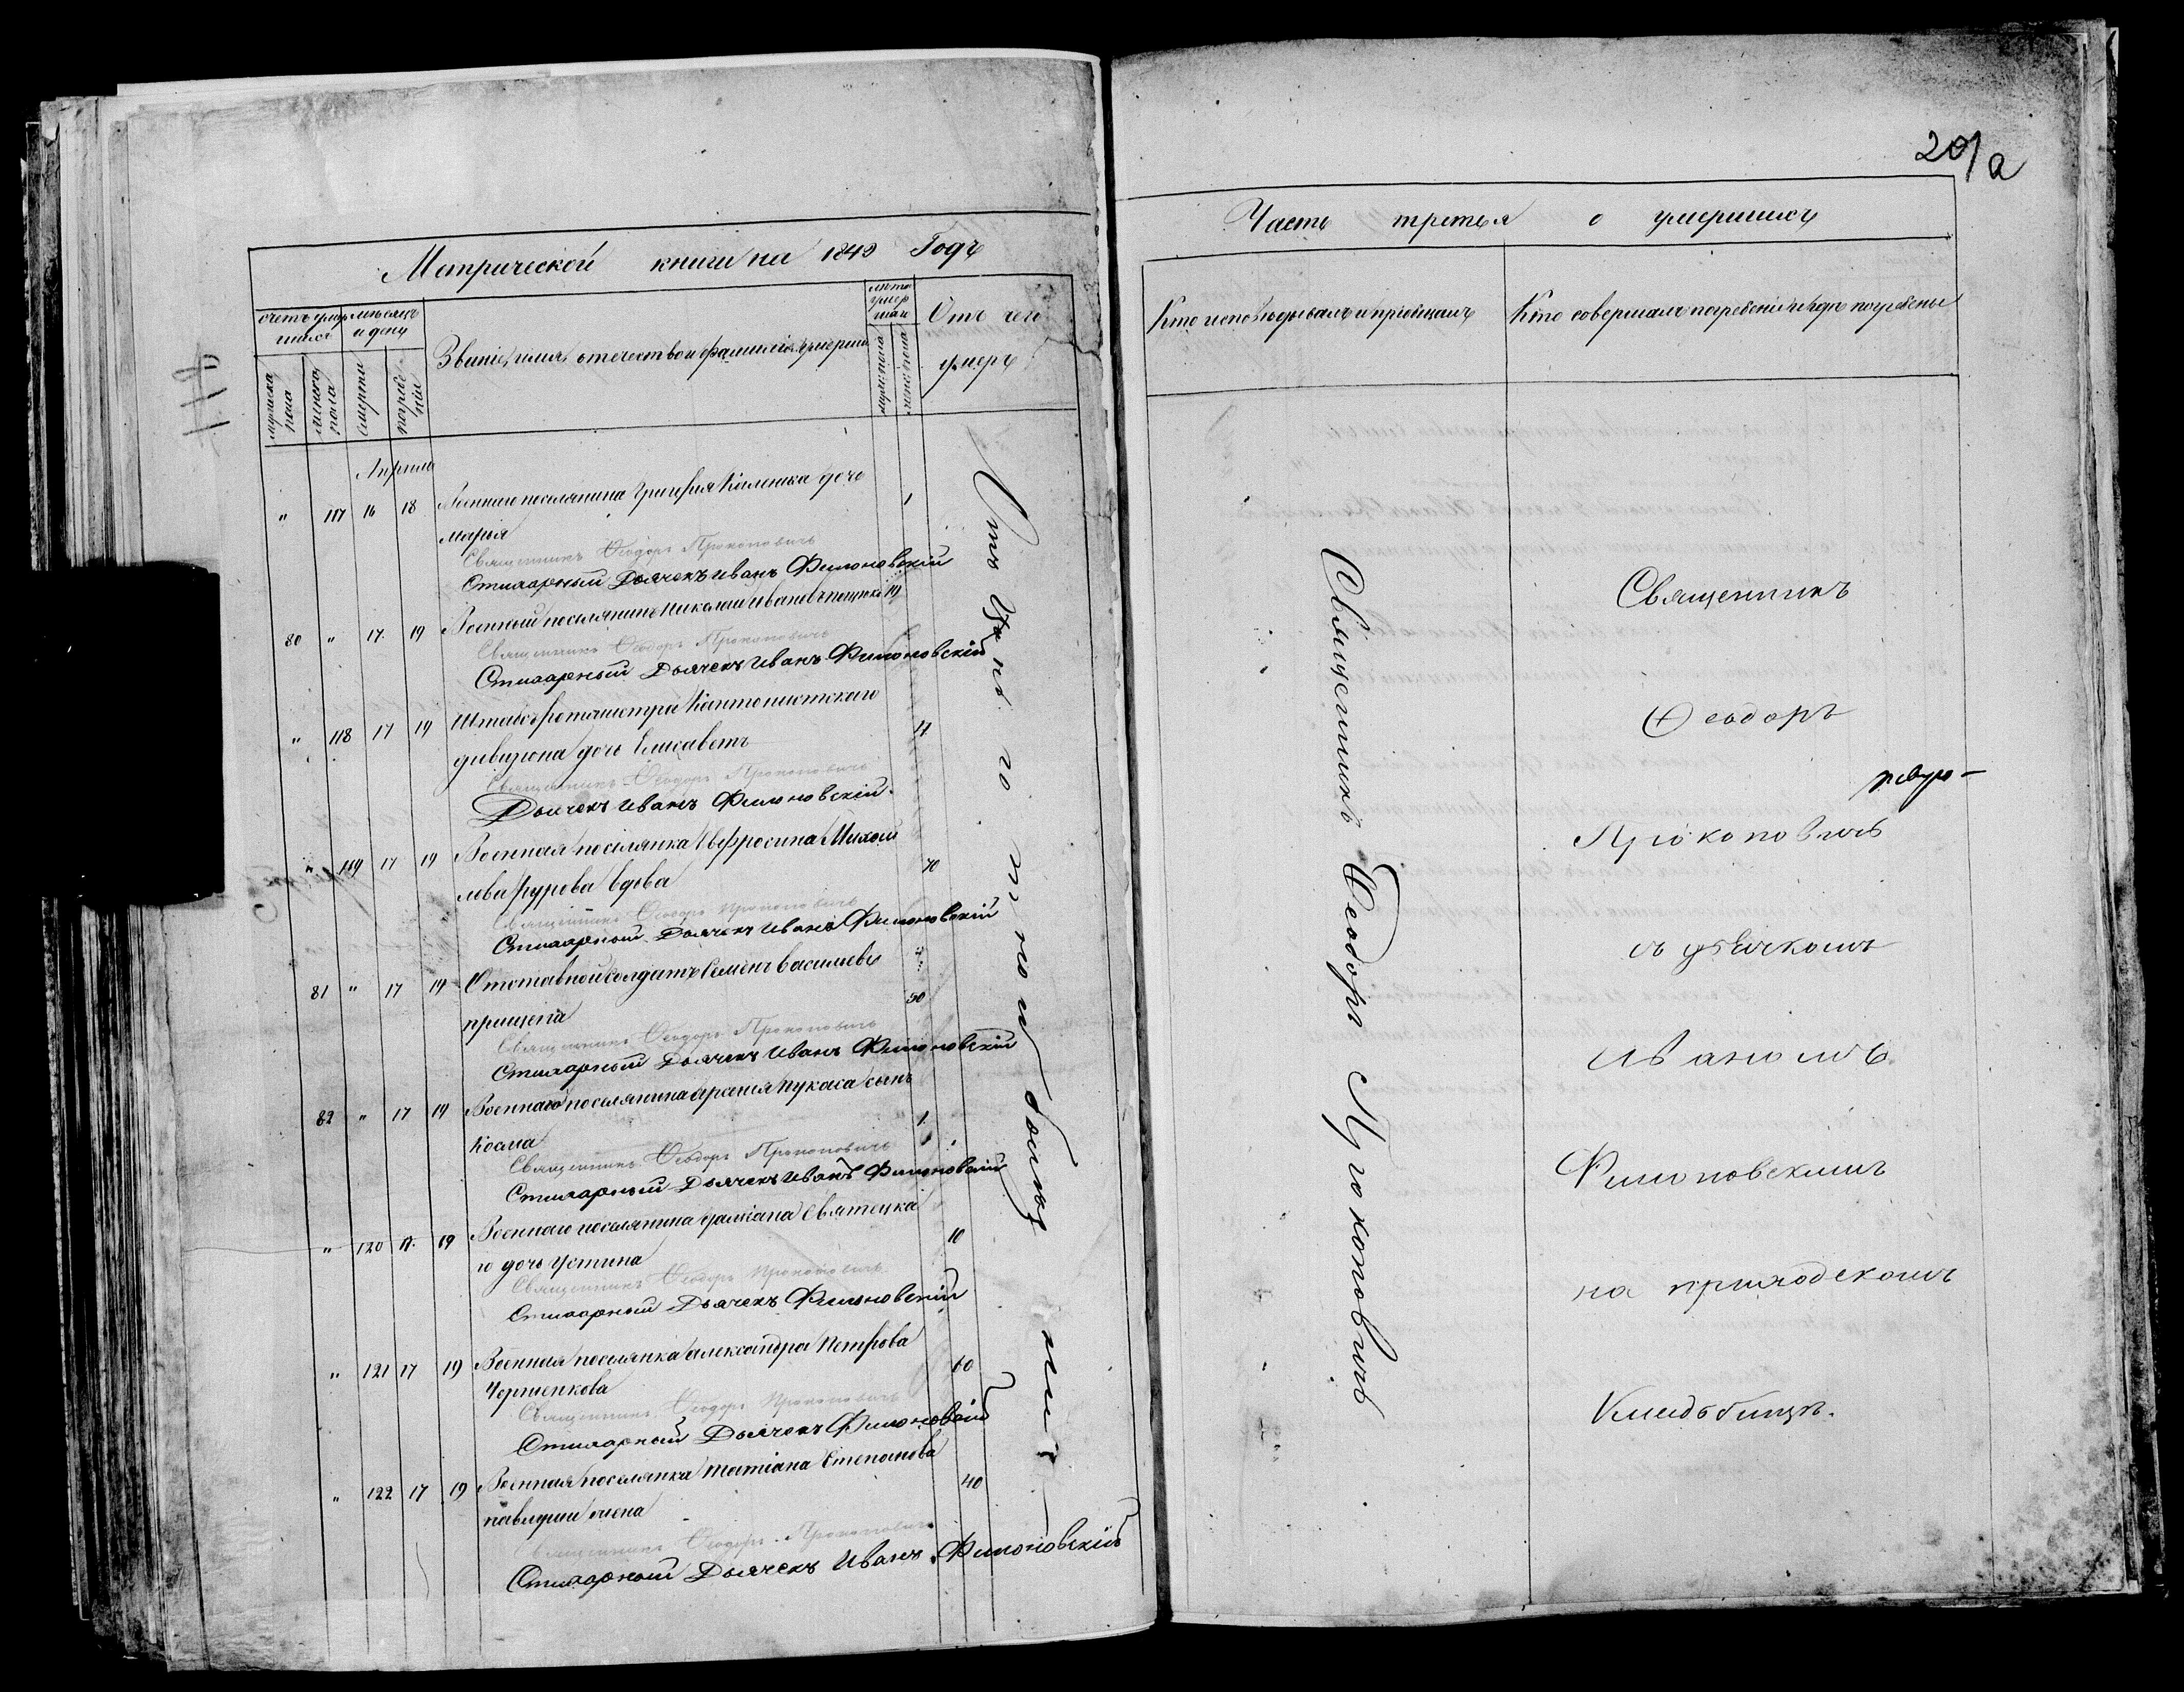 Метрической книги на 1849 Годъ
счетъ умершихъ
месяцъ и день
мужеска пола
женска пола
смерти
погребенія
Званіе, имя, отечество и фамилія умерши
лета умершаи
мужс пола
женс пола
Отъ чего умеръ
Апрель
" 117 16 18 Военнаго поселянина Григорія дочь 1
марія
Священникъ Ѳеодоръ Прокоповичъ
Стихарный Дьячекъ Иванъ Филоновскій
80 " 17 19 Военный поселянинъ Николай Ивановъ 19
Священникъ Ѳеодоръ Прокоповичъ
Стихарный Дьячекъ Иванъ Филоновскій
" 118 17 19 Штабсъ ротмистра Кантонистскаго
дивизіона дочь Елисаветъ 4
Священникъ Ѳеодоръ Прокоповичъ
Дьячекъ Иванъ Филоновскій
" 119 17 19 Военная поселянка Евфросина Михай
лова вдова 70
Священникъ Ѳеодоръ Прокоповичъ
Стихарный Дьячекъ Иванъ Филоновскій
81 " 17 19 Отставной Солдатъ Семенъ Васильевъ
прищепа 50
Священникъ Ѳеодоръ Прокоповичъ
Стихарный Дьячекъ Иванъ Филоновскій
82 " 17 19 Военнаго поселянина сынъ
Косма 1
Священникъ Ѳеодоръ Прокоповичъ
Стихарный Дьячекъ Иванъ Филоновскій
" 120 17 19 Военнаго поселянина даміана Святецка
го дочь Устина 10
Священникъ Ѳеодоръ Прокоповичъ
Стихарный Дьячекъ Филоновскій
" 121 17 19 Военная поселянка александра Петрова 60
Черненкова
Священникъ Ѳеодоръ Прокоповичъ
Стихарный Дьячекъ Филоновскій
" 122 17 19 Военная поселянка татіана Степанова 40
Священникъ Ѳеодоръ Прокоповичъ
Стихарный Дьячекъ Иванъ Филоновскій
Отъ Цынготной болезни
118
20/a
Часть третья о умершихъ
Кто исповедывалъ и пріобщалъ
Кто совершалъ погребеніе и где погребены
Священникъ Ѳеодоръ Прокоповичъ
Священникъ
Ѳеодоръ
Прокоповичъ
съ дьячкомъ
Иваномъ
Филоновскимъ
на приходскомъ
Кладбищъ.